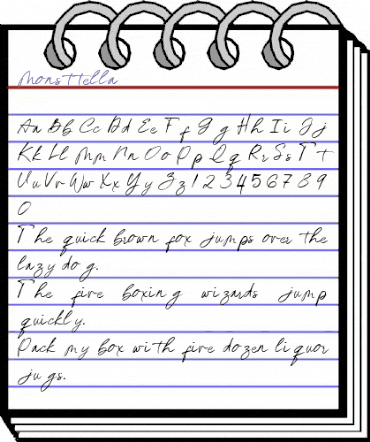 Monsttella
Aa Bb Cc Dd Ee Ff Gg Hh Ii Jj
Kk Ll Mm Nn Oo Pp Qq Rr Ss Tt
Uu Vv Ww Xx Yy Zz 1 2 3 4 5 6 7 8 9
0
The quick brown fox jumps over the
lazy dog.
The five boxing wizards jump
quickly.
Pack my box with five dozen liquor
jugs.